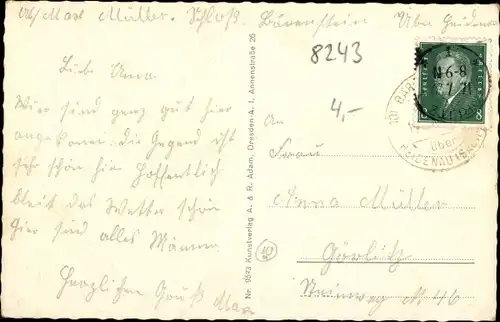 Abs/ Max Müller. Schloß. Bärenstein Über Heidenau
8243
4,-
Lieb Anna.
Wir sind ganz gut hier
angekommen. Die Gegend ist
sehr schön hier Hoffentlich
bleibt das Wetter schön
Hier sind alles Männer
Herzlichen Gruß Max
Nr. 9693 Kunstverlag A. & R. Adam, Dresden-A. 1, Annenstraße 26
An
Frau
Anna Müller
Görlitz
Steinweg № 46
8
über
HEIDENAU